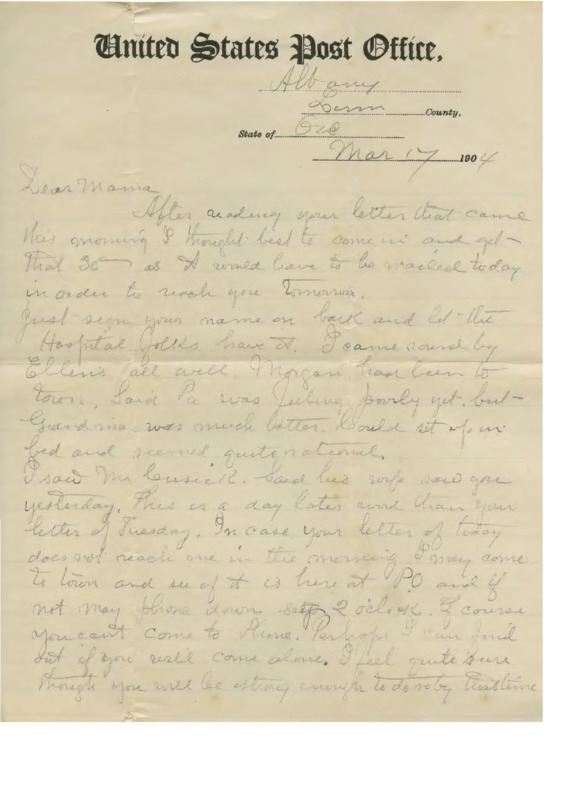 United States Post Office,
Albany
Linn County,
State of Ore
Mar 17 1904
Dear Mama
After reading your letter that came
this morning I thought best to come in and get
that 30 as it would have to be mailed today
in order to reach you tomorrow.
Just sign your name on back and let the
Hospital folks have it. I came round by
Ellen's all well. Morgan had been to
town, Said Pa was feeling poorly yet. but
Grandma was much better. Could sit up in
bed and seemed quite rational.
I saw Mr Cusick. Said his wife saw you
yesterday. This is a day later word than your
letter of Tuesday. In case your letter of today
does not reach me in the morning I may come
to town and see if it is here at P.O and if
not may phone down say 2 o'clock. Of course
you can't come to Phone. Perhaps I can find
out if you will come alone. I feel quite sure
though you will be strong enough to do so by this time